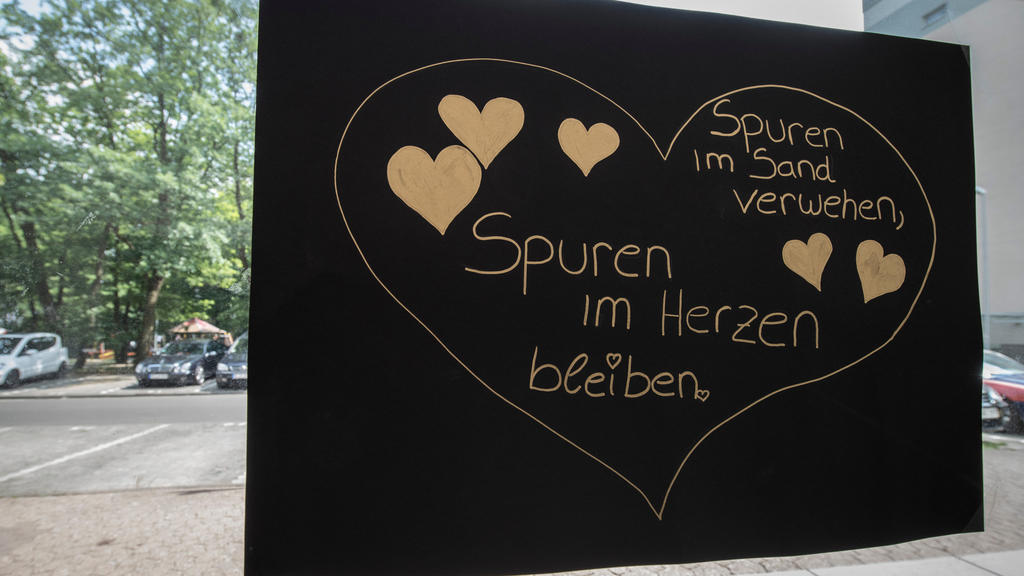 Spuren
im Sand
verwehen,
Spuren
im Herzen
bleiben.